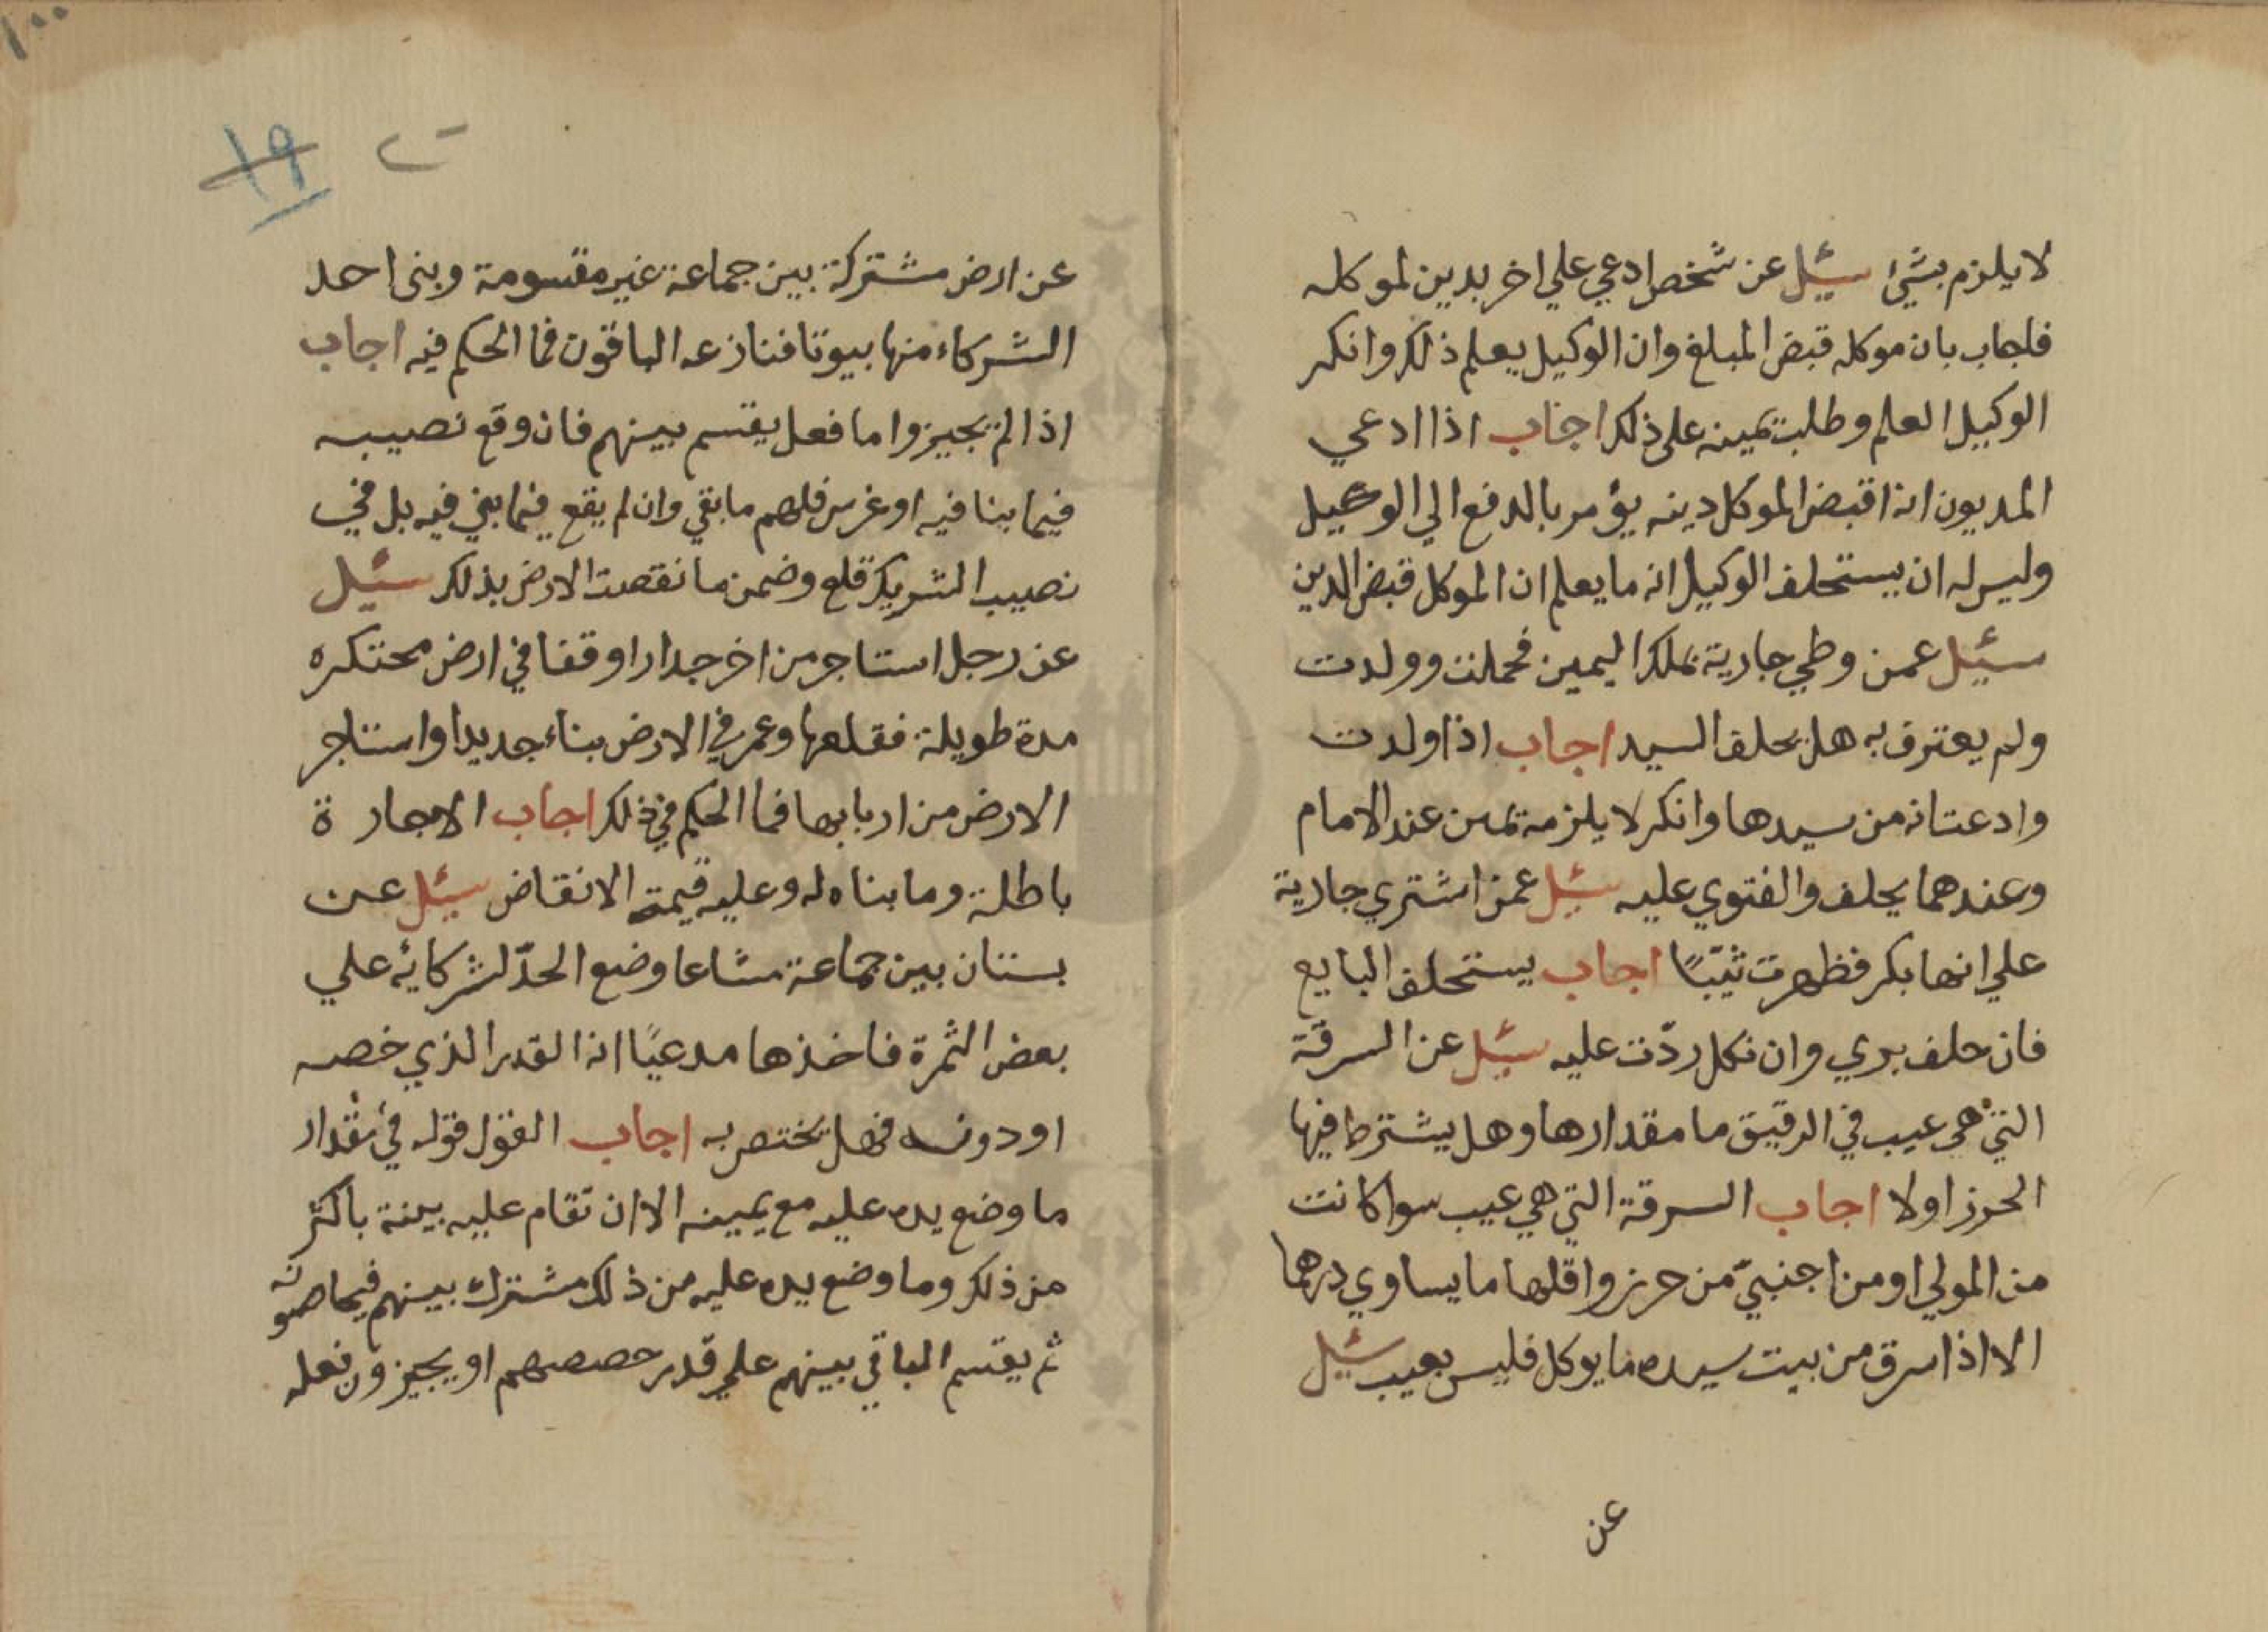 لا يلزم بشئ سئيل عن شخص ادعي علي اخر بدين لموكله
فاجاب بان موكله قبض المبلغ وان الوكيل يعلم ذلك وانكر
الوكيل العلم وطلبت يمينه على ذلك اجاب اذا ادعي
المديون انه اقبض الموكل دينه يؤمر بالدفع الي الوكيل
وليس له ان يستحلف الوكيل انه ما يعلم ان الموكل قبض الدين
سئيل عمن وطي جارية بملك اليمين فحملت وولدت
ولم يعترف به هل يحلف السيد اجاب اذا ولدت
وادعت انه من سيدها وانكر لا يلزمه يمين عند الامام
وعندهما يحلف والفتوي عليه سئيل عمن اشتري جارية
علي انها بكر فظهرت ثيّبًا اجاب يستحلف البايع
فان حلف بري وان نكل ردّت عليه سئيل عن السرقة
التي هي عيب في الرقيق ما مقدارها وهل يشترط فيها
الحرز اولا اجاب السرقة التي هي عيب سوا كانت
من المولي او من اجنبيّ من حرز واقلها ما يساوي درهما
الا اذا سرق من بيت سيده ما يوكل فليس بعيب سئيل
عن
١٠٠
١٩
عن ارض مشتركة بين جماعة غير مقسومة وبنى احد
الشركاء منها بيوتا فنازعه الباقون فما الحكم فيه اجاب
اذا لم يجيزوا ما فعل يقسم بينهم فان وقع نصيبه
فيما بنا فيه او غرس فلهم ما بقي وان لم يقع فيما بني فيه بل في
نصيب الشريك قلع وضمن ما نقصت الارض بذلك سئيل
عن رجل استاجر من اخر جدارا وقفا في ارض محتكره
مدة طويلة فقلعها وعمر في الارض بناء جديدا واستاجر
الارض من اربابها فما الحكم في ذلك اجاب الاجارة
باطلة وما بناه له وعليه قيمة الانقاض سئيل عن
بستان بين جماعة مشاعا وضع الحدّ لشركايه علي
بعض الثمرة فاخذها مدعيًا انه القدر الذي خصه
او دونه فهل يختص به اجاب القول قوله في مقدار
ما وضع يده عليه مع يمينه الا ان تقام عليه بينة باكثر
من ذلك وما وضع يده عليه من ذلك مشترك بينهم
ثم يقسم الباقي بينهم علي قدر حصصهم او يجيزون فعله